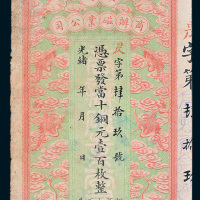 商辦磁業公司
晟字第肆拾玖號
憑票發當十銅元壹百枚整
光緒 年 月 日
字第拾玖